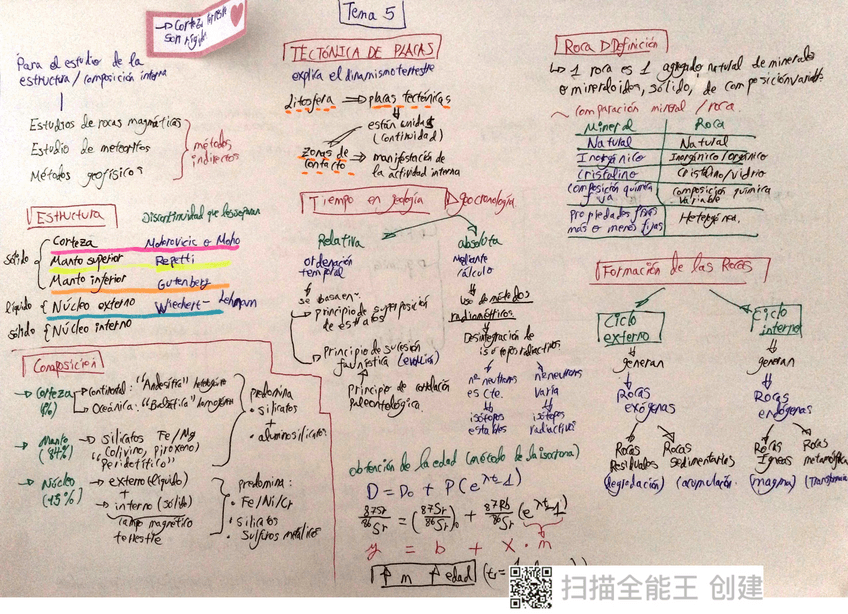 Tema 5
→ Corteza
son rígida
Para el estudio de la
estructura/composición interna
Estudios de rocas magmáticas
Estudio de meteoritos
Métodos geofísicos
métodos
indirectos
Estructura
Discontinuidad que les separan
sólido
Corteza Mohorovicic o Moho
Manto superior Repetti
Manto inferior Gutenberg
líquido { Núcleo externo Wiechert-Lehmann
sólido { Núcleo interno
Composición
→ Corteza
(1%)
→ Continental: "Andesítica" heterogénea
→ Oceánica: "Basáltica" homogénea
→ Manto
(84%)
→ silicatos Fe/Mg
"(olivino, piroxeno)
Peridotítico"
predomina
• silicatos
+
• aluminosilicatos
→ Núcleo
(15%)
→ externo (líquido)
+
→ interno (sólido)
campo magnético
terrestre
predomina:
• Fe/Ni/Cr
• silicatos
• Sulfuros metálicos
TECTÓNICA DE PLACAS
explica el dinamismo terrestre
Litosfera ⇒ placas tectónicas
están unidas
(continuidad)
Zonas de
contacto
⇒ manifestación de
la actividad interna
Tiempo en geología
geocronología
Relativa
ordenación
temporal
se basa en
principio de superposición
de estratos
Principio de sucesión
faunística (evolución)
Principio de correlación
paleontológica.
absoluta
Mediante
cálculo
uso de métodos
radiométricos
Desintegración de
isótopos radiactivos
nº neutrons
es cte.
isótopos
estables
nº neutrons
varía
isótopos
radiactivos
obtención de la edad (método de la isocrona)
D = D₀ + P(e^λt-1)
87Sr/86Sr = (87Sr/86Sr)₀ + 87Rb/86Sr (e^λt-1)
y = b + x · m
↑ m ↑ edad (t=
Roca Definición
↳ 1 roca es 1 agregado natural de minerales
o mineraloides, sólido, de composición variable
~ comparación mineral/roca.
Mineral Roca
Natural Natural
Inorgánico Inorgánico/orgánico
Cristalino Cristalino/vidrio
composición química
va
Composición química
variable
Propiedades fijas
más o menos fijas
Heterogénea.
Formación de las Rocas
Ciclo
externo
generan
Rocas
exógenas
Rocas
Residuales
(degradación)
Rocas
sedimentarias
(acumulación)
Ciclo
interno
generan
Rocas
endógenas
Rocas
Ígneas
(magma)
Rocas
metamórficas
扫描全能王 创建